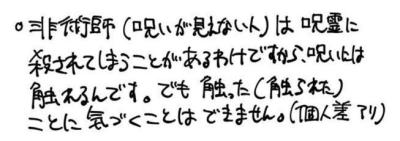 ○非術師（呪いが見えない人）は呪霊に
殺されてしまうことがあるわけですから、呪いには
触れるんです。でも触った（触られた）
ことに気づくことはできません。（個人差アリ）